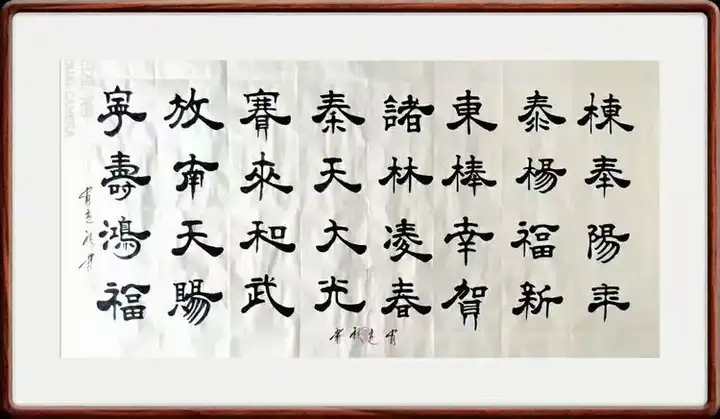 棟奉陽年
泰楊福新
東棒幸賀
諸林凌春
秦天大光
賽來和武
放南天賜
寧壽鴻福